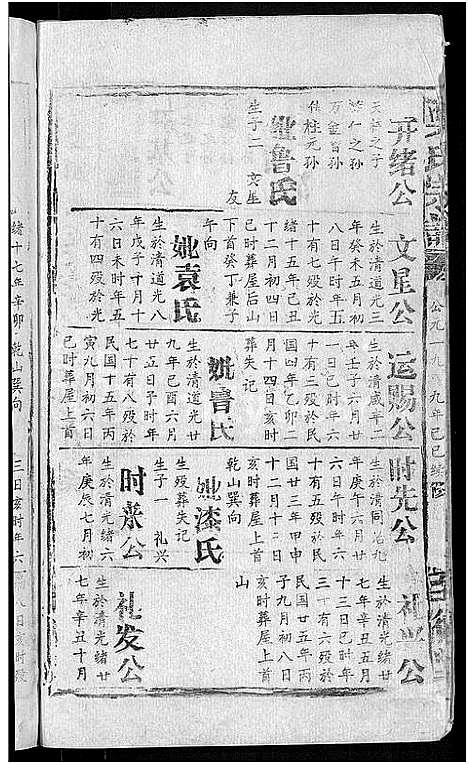 公元一九八九年己巳續修
开绪公
天祥之子
万金曾孙
桂元孙
妣鲁氏
生子二 文星
友
文星公
生於清道光三
年癸未五月初
八日午时年五
十有七殁於光
绪十五年己丑
十二月初四日
巳时葬屋后山
下首癸丁兼子
午向
妣袁氏
生於清道光八
年戊子十月十
六日未时年五
十有四殁於光
绪十七年辛卯
乾山巽向
运赐公
生於清咸丰二
年壬子六月廿
一日巳时年六
十有三殁於民
国四年乙卯二
月十四日亥时
葬失记
妣鲁氏
生於清道光廿
九年己酉六月
廿五日子时年
七十有八殁於
民国十五年丙
寅九月初六日
巳时葬屋上首
时先公
生於清同治九
年庚午六月廿
六日午时年六
十有五殁於民
国廿三年甲申
十二月十二日
亥时葬屋上首
乾山巽向
妣漆氏
生殁葬失记
生子一 礼兴
时来公
生於清光绪六
年庚辰七月初
三日亥时年六
礼兴公
生於清光绪廿
七年辛丑五月
十三日巳时年
三十有六殁於
民国廿五年丙
子九月初八日
亥时葬屋上首
山
礼发公
生於清光绪廿
七年辛丑十月
八日亥时殁